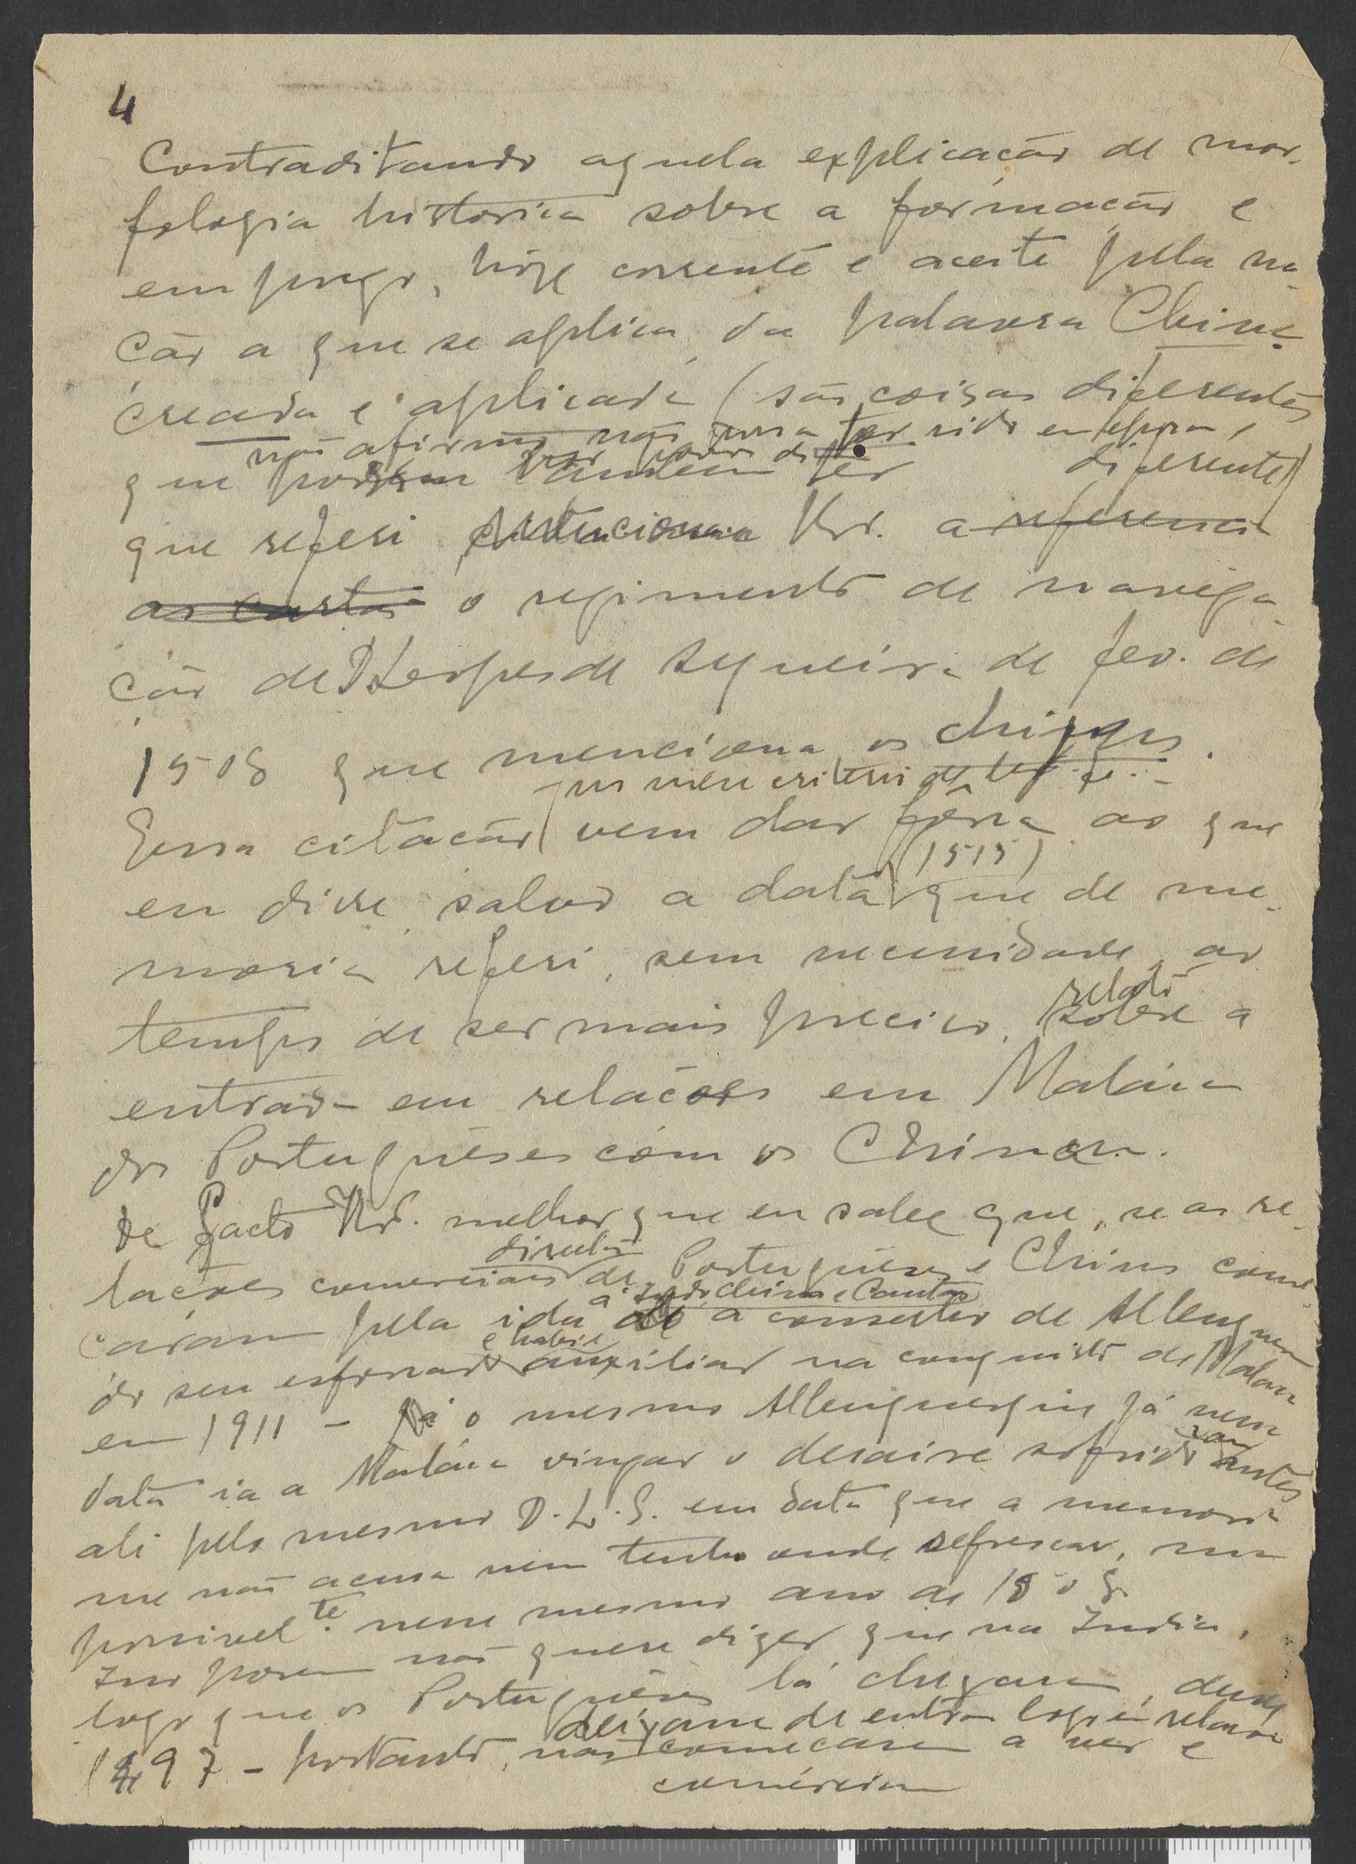 4
Contraditando aquela explicação de mor-
fologia historica sobre a formação e
emprego, hoje corrente e aceite pela na-
ção a que se aplica, da palavra China
creada e aplicada (são coisas diferentes
não afirmo não possa ter sido em epoca,
que podem tambem ser diferente)
que referi Vrª. a referencia
as cartas o regimento de navega-
ção de D Lopes de Sequeira de fev. de
1508 que menciona os chijns.
no meu criterio de
Essa citação vem dar fôrça ao que
(1515)
eu disse, salvo a data que de me-
moria referi, sem necessidade ao
relatº
tempo de ser mais preciso, sobre a
entrada em relações em Maláca
dos Portuguêses com os Chinas.
De facto Vrª. melhor que eu sabe que, se as re-
directas
lações comerciais de Portuguêses e Chins come-
á Indochina e Cantão
çaram pela ida a conselho de Albuquerque
e habil
do seu esforçado auxiliar na conquista de Malaca
em 1911 - Já o mesmo Albuquerque já nessa
data ia a Maláca vingar o desaire sofrido antes
ali pelo mesmo D. L. S. em data que a memoria
me não acusa nem tenho onde refrescar, mas
possivelte. nesse mesmo ano de 1508.
Isso porem não quere dizer que na India,
logo que os Portuguêses lá chegaram, desde
deixam de entrar logo em relações
1497 - portanto, não começaram a ver e
comerciar